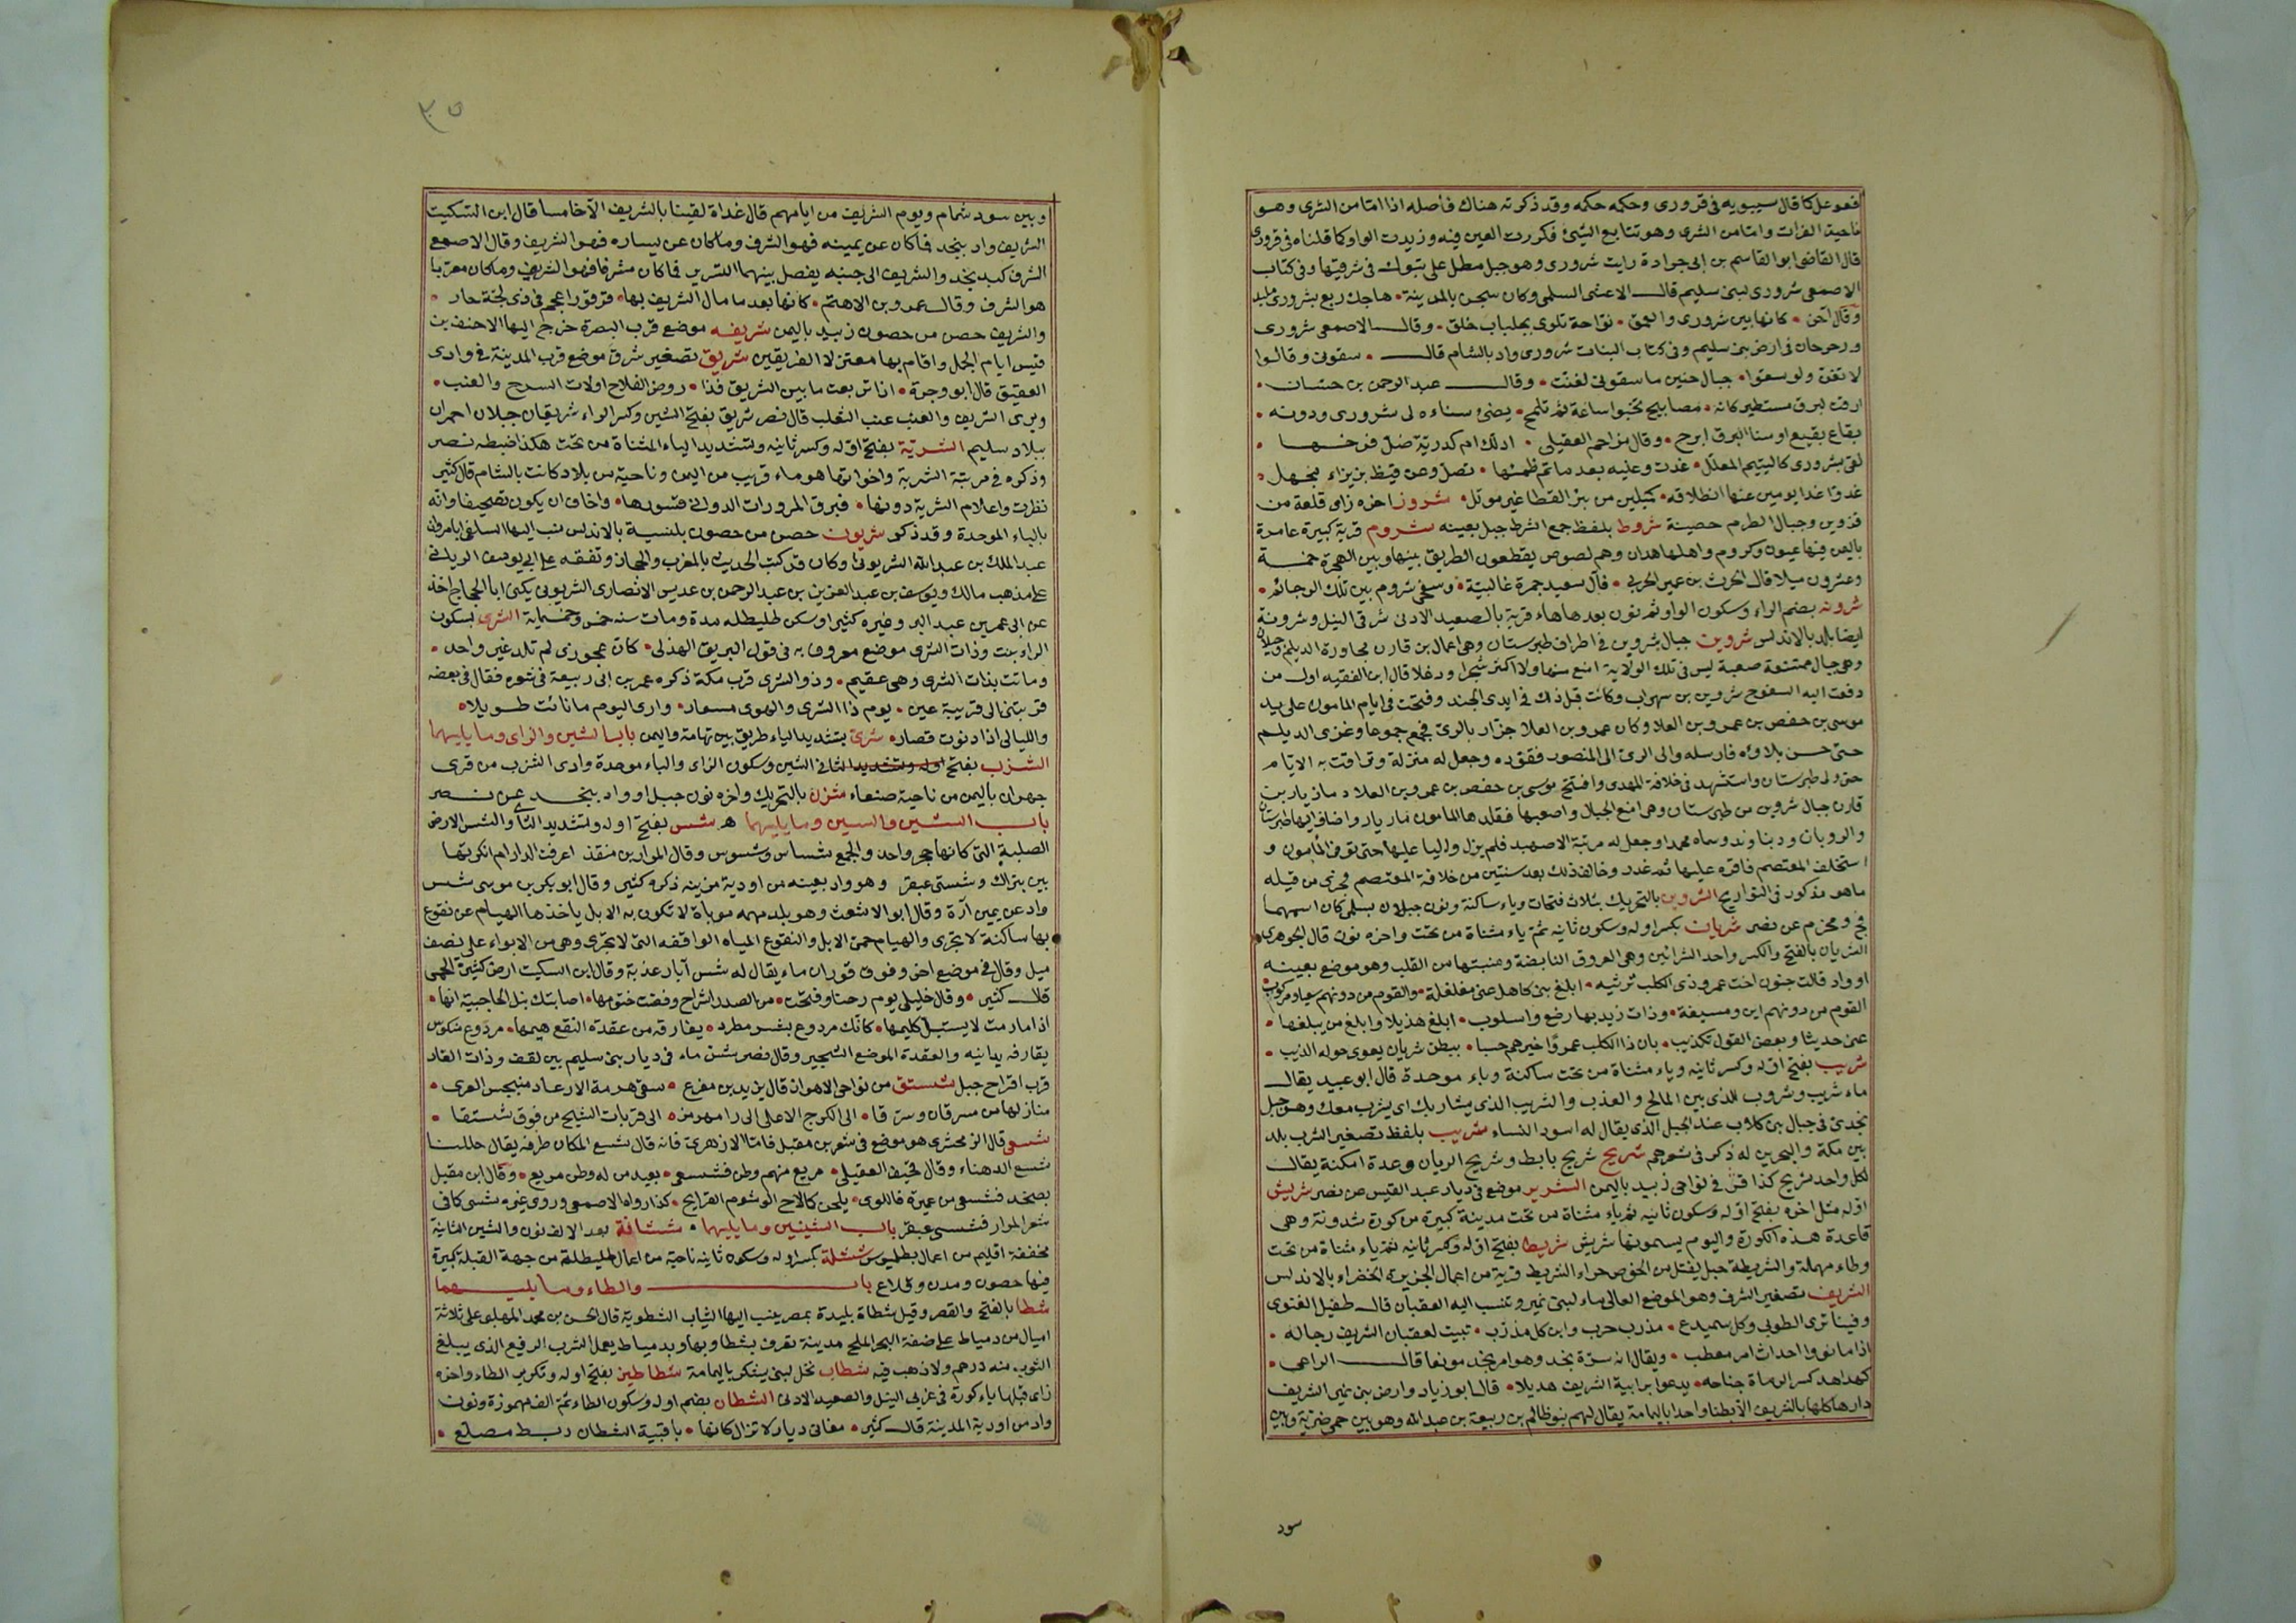 فعوعل كا قال سيبويه فى قرورى وحكمه حكمه وقد ذكرته هناك فأصله اذا امّا من الشرى وهو
ناحية الفرات وامّا من الشرى وهو تتابع الشئ فكررت العين فيه وزيدت الواو كما قلناه فى قرورى
قال القاضى ابو القاسم بن ابى جرادة رايت شرورى وهو جبل مطل على تبوك فى شرقيتها وفى كتاب
الاصمعى شرورى لبنى سليم قال الاعشى السلمى وكان سجن بالمدينة • هاجك ربع بشرورى ملبد
وقال آخر • كانها بين شرورى والعمق • نوّاحة تلوى بجلباب خلق • وقال الاصمعى شرورى
ورحرحان فى ارض بنى سليم وفى كتاب النبات شرورى واد بالشام قال • سقونى وقالوا
لا تغن ولو سقوا • جبال حنين ما سقونى لغنّت • وقال عبد الرحمن بن حسّان •
ارقت لبرق مستطير كانه • مصابيح تخبوا ساعة ثم تلمح • يضئ سناه لى شرورى ودونه •
بقاع بقيع او سنا البرق ابرح • وقال مزاحم العقيلى • اذلك ام كدريّة ضلّ فرخها •
لقى بشرورى كاليتيم المعلّل • غدت وعليه بعد ما تم ظمئها • تصلّ وعن قيظ بزيزاء بمجهل •
غدوّا غدا يومين عنها انطلاقه • كميلين من بئر القطا غير مؤتل • شروز اخره زاى قلعة من
قزوين وجبال الطرم حصينة شروط بلفظ جمع الشرط جبل بعينه شروم قرية كبيرة عامرة
باليمن فيها عيون وكروم واهلها همدان وهم لصوص يقطعون الطريق بينها وبين الهجرة خمسة
وعشرون ميلا قال الحرث بن عمير الحربى • قال سعيد جمرة غالبيّة • وسخفى شروم بين تلك الرجائم •
شرونه بضم الراء وسكون الواو ثم نون بعدها هاء قرية بالصعيد الادنى شرقى النيل وشرونة
ايضا بلد بالاندلس شروين جبال شروين فى اطراف طبرستان وهى اعمال بن قارن مجاورة الديلم وجيلان
وهى جبال ممتنعة صعبة ليس فى تلك الولاية امنع منها ولا اكثر شجرا ودغلا قال ابن الفقيه اول من
دفعت اليه السفوح شروين بن سهراب وكانت قبل ذلك فى ايدى الجند وفتحت فى ايام المامون على يد
موسى بن حفص بن عمرو بن العلا وكان عمرو بن العلا جزّار بالرى فجمع جموعا وغزى الديلم
حتى حسن بلاؤه فارسله والى الرى الى المنصور فقوده وجعل له منزلة وتراقت به الايام
حتى ولى طبرستان واستشهد فى خلافة المهدى وافتتح موسى بن حفص بن عمرو بن العلا ومازيار بن
قارن جبال شروين من طبرستان وهى امنع الجبال واصعبها فقلدها المامون مازيار واضاف اليها طبرستان
والرويان ودنباوند وسماه محمدا وجعل له مرتبة الاصبهبد فلم يزل واليا عليها حتى توفى المأمون و
استخلف المعتصم فاقره عليها ثم غدر وخالف ذلك بعد سنتين من خلافة المعتصم فجرى من قبله
ماهو مذكور فى التواريخ الشروين بالتحريك بثلاث فتحات وياء ساكنة ونون جبلان بسلمى كان اسمهما
فخ ومخزم عن نصر شريان بكسر اوله وسكون ثانيه ثم ياء مثناة من تحت واخره نون قال الجوهرى
الشريان بالفتح والكسر واحد الشرائين وهى العروق النابضة ومنبتها من القلب وهو موضع بعينه
او واد قالت جنوب اخت عمرو ذى الكلب ترثيه • ابلغ بنى كاهل عنى مغلغلة • والقوم من دونهم سعيا ومركوب
القوم من دونهم اين ومسبغة • وذات زيد بها رضع واسلوب • ابلغ هذيلا وابلغ من يبلغها •
عنى حديثا وبعض القول تكذيب • بان ذا الكلب عمرًوا خيرهم حسبا • ببطن شريان يعوى حوله الذيب •
شريب بفتح اوله وكسر ثانيه وياء مثناة من تحت ساكنة وباء موحدة قال ابو عبيد يقال
ماء شريب وشروب للذى بين المالح والعذب والشريب الذى يشاربك اى يشرب معك وهو جبل
نجدى فى جبال بنى كلاب عند الجبل الذى يقال له اسود النساء شريب بلفظ تصغير الشرب بلد
بين مكة والبحرين له ذكر فى شعرهم شريج شريج بابط وشريج الريان وعدة امكنة يقال
لكل واحد شريج كذا قرى فى نواحى زبيد باليمن الشرير موضع فى ديار عبد القيس عن نصر شريش
اوله مثل اخره بفتح اوله وسكون ثانيه ثم ياء مثناة من تحت مدينة كبيرة من كورة شدونة وهى
قاعدة هذه الكورة واليوم يسمونها شريش شريط بفتح اوله وكسر ثانيه ثم ياء مثناة من تحت
وطاء مهملة والشريطة حبل يفتل من الخوص جراء الشريط قرية من اعمال الجزيرة الخضراء بالاندلس
الشريف تصغير الشرف وهو الموضع العالى ماء لبنى نمير وتنسب اليه العقبان قال طفيل الغنوى
وفينا ترى الطوبى وكل سميدع • مذرب حرب وابن كل مذرّب • تبيت لعقبان الشريف رجاله •
اذا ما نووا احداث امر معطب • ويقال انه سرّة بنجد وهو امرء نجد موضعا قال الراعى •
كهداهد كسر الرماة جناحه • يدعوا برابية الشريف هديلا • قال ابو زياد وارض بنى نمير الشريف
دارها كلها بالشريف الّا بطنا واحدا باليمامة يقال لهم بنو ظالم بن ربيعة بن عبد الله وهو بين حمى ضرية وبين
سود
٣٥
وبين سود شمام ويوم الشريف من ايامهم قال غداة لقينا بالشريف الاخامسا قال ابن السكيت
الشريف واد بنجد فما كان عن يمينه فهو الشرف وما كان عن يساره فهو الشريف وقال الاصمعى
الشرف كبد نجد والشريف الى جنبه يفصل بينهما التسرير فما كان مشرقا فهو الشريف وما كان مغربا
هو الشرف وقال عمرو بن الاهتم • كانها بعد ما مال الشريف بها • قرقور اعجم فى ذى لجّة جار •
والشريف حصن من حصون زبيد باليمن شريفه موضع قرب البصرة خرج اليها الاحنف بن
قيس ايام الجمل واقام بها معتزلا الفريقين شريق تصغير شرق موضع قرب المدينة فى وادى
العقيق قال ابو وجرة • اذا تربعت ما بين الشريق فذا • روض الفلاج اولات السرح والعنب •
ويروى الشريف والعنب عنب الثعلب قال نصر شريق بفتح الشين وكسر الراء شريقان جبلان احمران
ببلاد سليم الشرية بفتح اوله وكسر ثانيه وتشديد الياء المثناة من تحت هكذا ضبطه نصر
وذكره فى مرتبة الشربة واخواتها هو ماء قريب من اليمن وناحية من بلاد كانت بالشام قال كثير
نظرت واعلام الشرية دونها • فبرق المرورات الدوانى فسورها • واخاف ان يكون تصحيفا وانه
بالباء الموحدة وقد ذكر شريون حصن من حصون بلنسية بالاندلس نسب اليها السلفى ابا مروان
عبد الملك بن عبد الله الشريونى وكان قد كتب الحديث بالمغرب والحجاز وتفقه على ابى يوسف الريانى
على مذهب مالك ويوسف بن عبد العزيز بن عبد الرحمن بن عديس الانصارى الشريونى يكنى ابا الحجاج اخذ
عن ابى عمر بن عبد البر وغيره كثيرا وسكن طليطله مدة ومات سنه خمس وخمسمايه الشرى بسكون
الراء بنت وذات الشرى موضع معروف به فى قول البريق الهذلى • كان عجوزى لم تلد غير واحد •
وماتت بذات الشرى وهى عقيم • وذو الشرى قرب مكة ذكره عمر بن ابى ربيعة فى شعره فقال فى بعضه
قربتنى الى قريبة عين • يوم ذا الشرى والهوى مستعار • وارى اليوم ما نائت طويلا •
والليالى اذا دنوت قصار • شرى بتشديد الياء طريق بين تهامة واليمن باب الشين والزاى وما يليهما
الشزب بفتح اوله وتشديد الثانى الشين وسكون الزاى والباء موحدة وادى الشزب من قرى
جهران باليمن من ناحية صنعاء شزن بالتحريك واخره نون جبل او واد بنجد عن نصر
باب الشين والسين وما يليهما • شس بفتح اوله وتشديد الثانى والشس الارض
الصلبة التى كانها حجر واحد والجمع شساس وشسوس وقال المرار بن منقذ اعرفت الدار ام انكرتها
بين تبراك وشسّى عبقر وهو واد بعينه من اودية مزينه ذكره كثير وقال ابو بكر بن موسى شس
واد عن يمين آرة وقال ابو الاشعث وهو بلد مهمه موباة لا تكون به الابل ياخذها الهيام عن نقوع
بها ساكنة لا تجرى والهيام حمى الابل والنقوع المياه الواقفه التى لا تجرى وهى من الابواء على نصف
ميل وقال فى موضع اخر وفوق قوران ماء يقال له شس آبار عذبة وقال ابن السكيت ارض كثيرة الحمى
قال كثير • وقال خليلى يوم رحنا وفتّحت • من الصدر اشراح وفضت ختومها • اصابتك نبل الحاجبية انها •
اذا ما رمت لا يستبل كليمها • كانك مردوع بشس مطرد • يفارقه من عقدة النقع هيمها • مردوع منكوس
يقارفه يدانيه والعقدة الموضع الشجير وقال نصر شس ماء فى ديار بنى سليم بين لقف وذات الغار
قرب اقراح جبل شستق من نواحى الاهواز قال يزيد بن مفرغ • سقى هزمة الارعاد منبجس العرى •
منازلها من مسرقان وسرّقا • الى الكرج الاعلى الى رامهرمز • الى قربات الشيخ من فوق شستقا •
شسعى قال الزمخشرى هو موضع فى شعر بن مقبل فامّا الازهرى فانه قال شسع المكان طرفه يقال حللنا
شسع الدهناء وقال قحيف العقيلى • مريع منهم وطن فشسعى • بعيد من له وطن مريع • وقال ابن مقبل
بصخد فشسعى من عميرة فاللوى • يلحن كالاح الوشوم القرايح • كذا رواه الاصمعى وروى غيره شسى كافى
شعر المرار فشسى عبقر باب الشينين وما يليهما • ششانة بعد الالف نون والشين الثانية
مخففة اقليم من اعمال بطليوس ششلة بكسر اوله وسكون ثانيه ناحية من اعمال طليطلة من جهة القبلة كبيرة
فيها حصون ومدن وقلاع باب والطاء وما يليهما
شطا بالفتح والقصر وقيل شطاة بليدة بمصر ينسب اليها الثياب الشطوية قال الحسن بن محمد المهلبى على ثلاثة
اميال من دمياط على ضفة البحر الملح مدينة تعرف بشطا وبها وبدمياط يعمل الثوب الرفيع الذى يبلغ
الثوب منه درهم ولا ذهب فيه شطاب نخل لبنى يشكر باليمامة شطاطيز بفتح اوله وتكرير الطاء واخره
زاى قبلها ياء كورة فى غربى النيل والصعيد الادنى الشطان بضم اوله وسكون الطاء ثمة الف مهموزة ونون
واد من اودية المدينة قال كثير • مغانى ديار لا تزال كانها • باقبية الشطان ريط مصلّع •